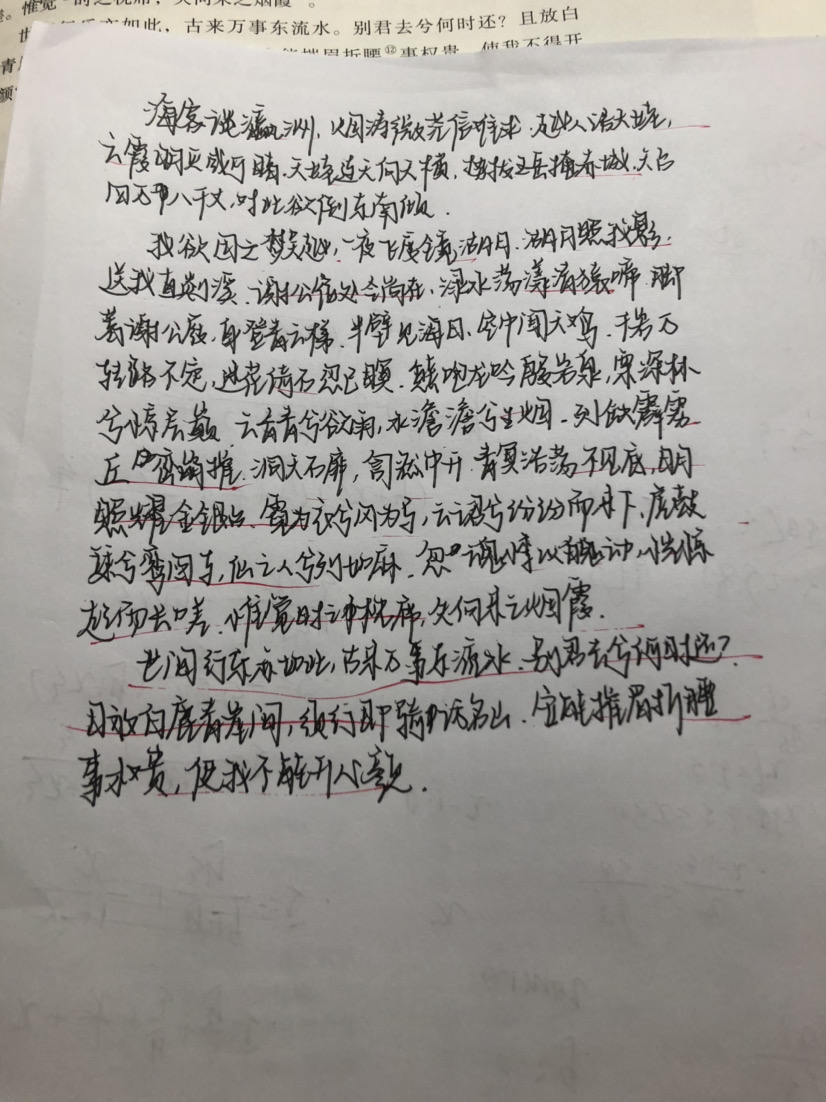 惟觉时之枕席，失向来之烟霞
世间行乐亦如此，古来万事东流水。别君去兮何时还？且放白
青
能摧眉折腰⑫事权贵，使我不得开
颜
海客谈瀛洲，烟涛微茫信难求，越人语天姥，
云霞明灭或可睹。天姥连天向天横，势拔五岳掩赤城，天台
四万八千丈，对此欲倒东南倾。
我欲因之梦吴越，一夜飞度镜湖月。湖月照我影，
送我至剡溪。谢公宿处今尚在，渌水荡漾清猿啼。脚
著谢公屐，身登青云梯。半壁见海日，空中闻天鸡。千岩万
转路不定，迷花倚石忽已暝。熊咆龙吟殷岩泉，栗深林
兮惊层巅。云青青兮欲雨，水澹澹兮生烟。列缺霹雳
丘峦崩摧。洞天石扉，訇然中开。青冥浩荡不见底，日月
照耀金银台。霓为衣兮风为马，云之君兮纷纷而来下。虎鼓
瑟兮鸾回车，仙之人兮列如麻。忽魂悸以魄动，恍惊
起而长嗟。惟觉时之枕席，失向来之烟霞。
世间行乐亦如此，古来万事东流水。别君去兮何时还？
且放白鹿青崖间，须行即骑访名山。安能摧眉折腰
事权贵，使我不能开心颜。